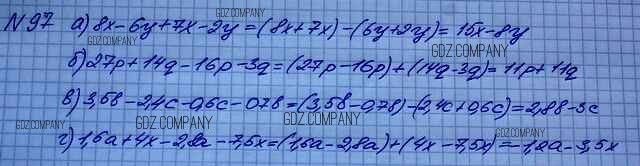 N97 а) 8x-6y+7x-2y=(8x+7x)-(6y+2y)=15x-8y
б) 27p+14q-16p-3q=(27p-16p)+(14q-3q)=11p+11q
в) 3,5b-2,4c-0,6c-0,78=(3,5b-0,78)-(2,4c+0,6c)=2,88-3c
г) 1,6a+4x-2,8a-7,5x=(1,6a-2,8a)+(4x-7,5x)=-1,2a-3,5x
GDZ.COMPANY
GDZ.COMPANY
GDZ.COMPANY
GDZ.COMPANY
GDZ.COMPANY
GDZ.COMPANY
GDZ.COMPANY
GDZ.COMPANY